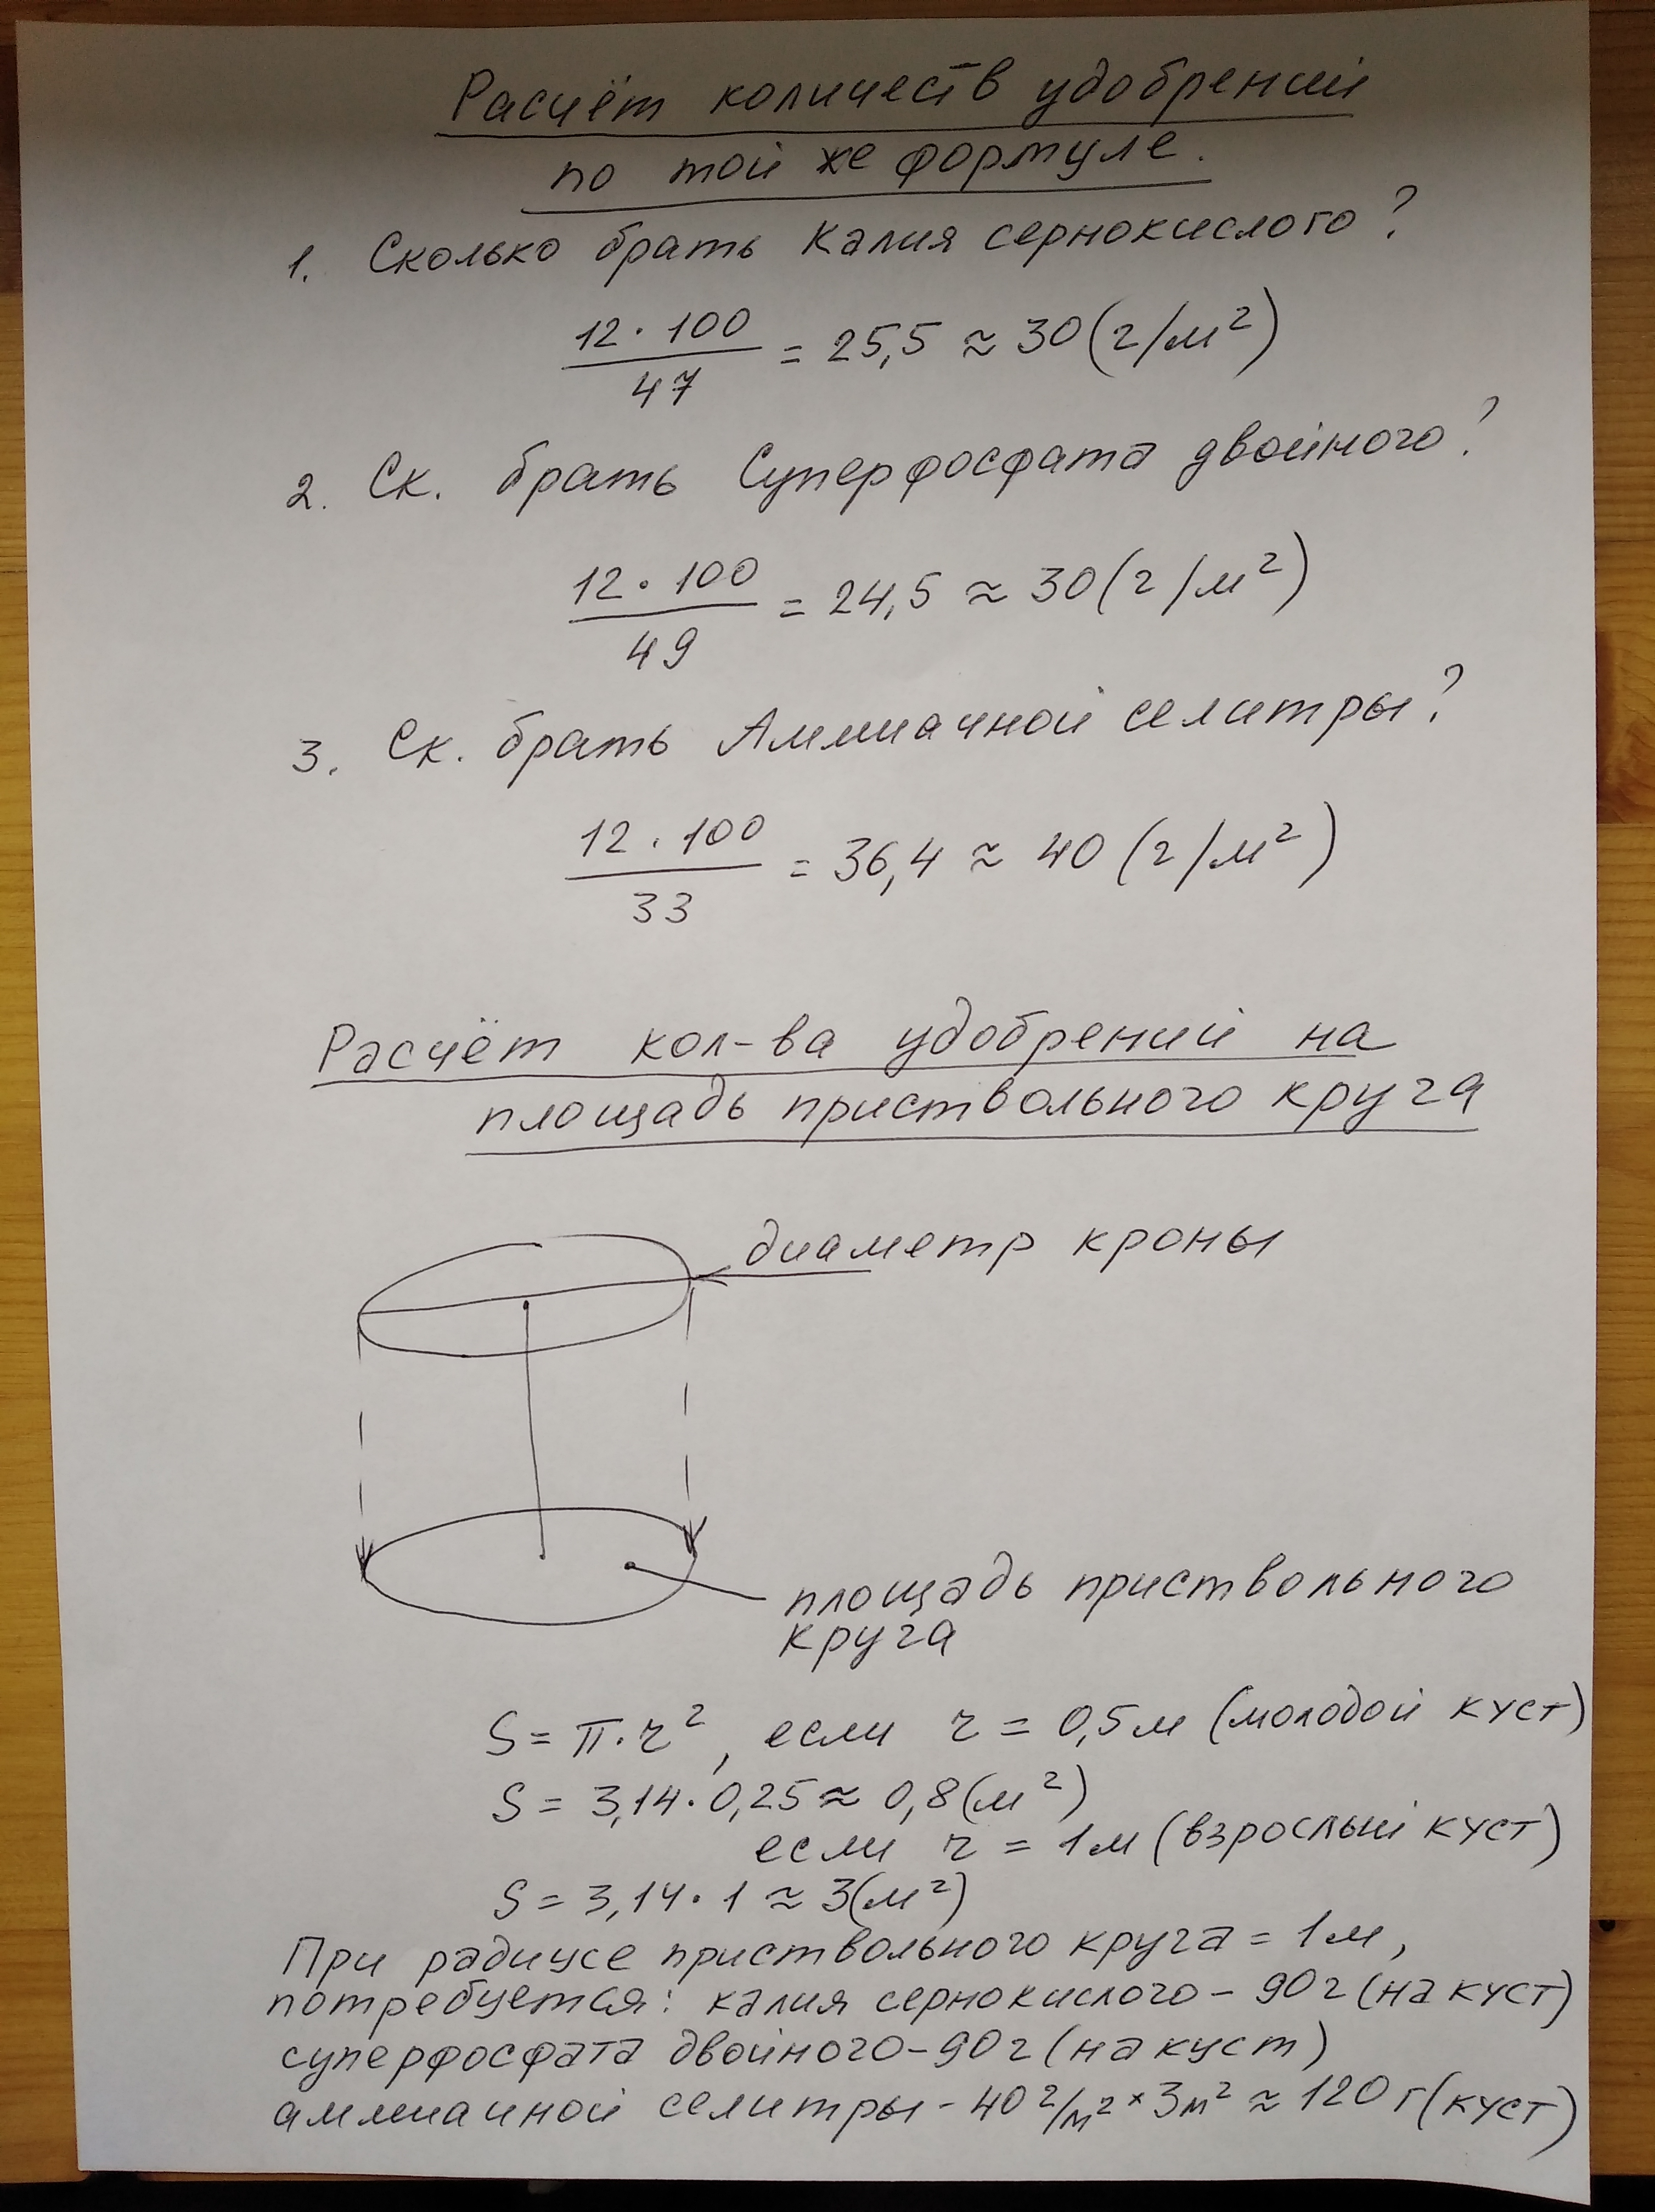 Расчёт количеств удобрений
по той же формуле.
1. Сколько брать Калия сернокислого?
12 · 100 / 47 = 25,5 ≈ 30 (г/м²)
2. Ск. брать Суперфосфата двойного?
12 · 100 / 49 = 24,5 ≈ 30 (г/м²)
3. Ск. брать Аммиачной селитры?
12 · 100 / 33 = 36,4 ≈ 40 (г/м²)
Расчёт кол-ва удобрений на
площадь приствольного круга
диаметр кроны
площадь приствольного
круга
S = π · r², если r = 0,5м (молодой куст)
S = 3,14 · 0,25 ≈ 0,8 (м²)
если r = 1м (взрослый куст)
S = 3,14 · 1 ≈ 3 (м²)
При радиусе приствольного круга = 1м,
потребуется: калия сернокислого – 90г (на куст)
суперфосфата двойного – 90г (на куст)
аммиачной селитры - 40 г/м² × 3м² ≈ 120 г (куст)